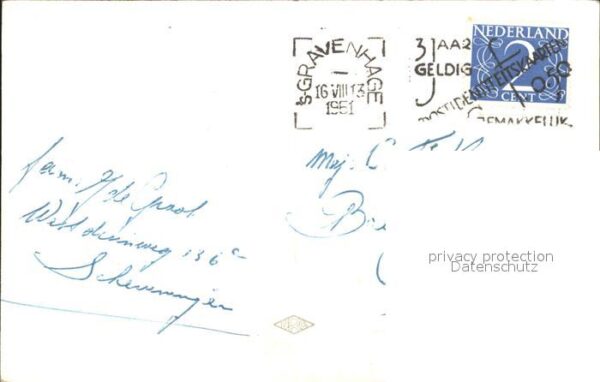 's-GRAVENHAGE
16 VIII 13
1951
3 JAAR
GELDIG
POSTIDENTITEITSKAARTEN
0,50
GEMAKKELIJK
NEDERLAND
2
CENT
fam. H de Groot
Westduinweg 136c
Scheveningen
Mej. C.
Bre
privacy protection
Datenschutz